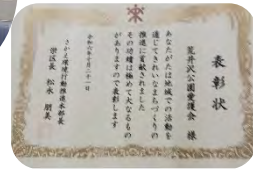 表彰状
荒井沢公園愛護会 様
あなたがたは地域での活動を
通じてきれいなまちづくりの
推進に貢献されました
その功績は極めて大なるもの
がありますので表彰します
令和六年十月二十一日
さかえ環境行動推進本部長
栄区長 松永 朋美